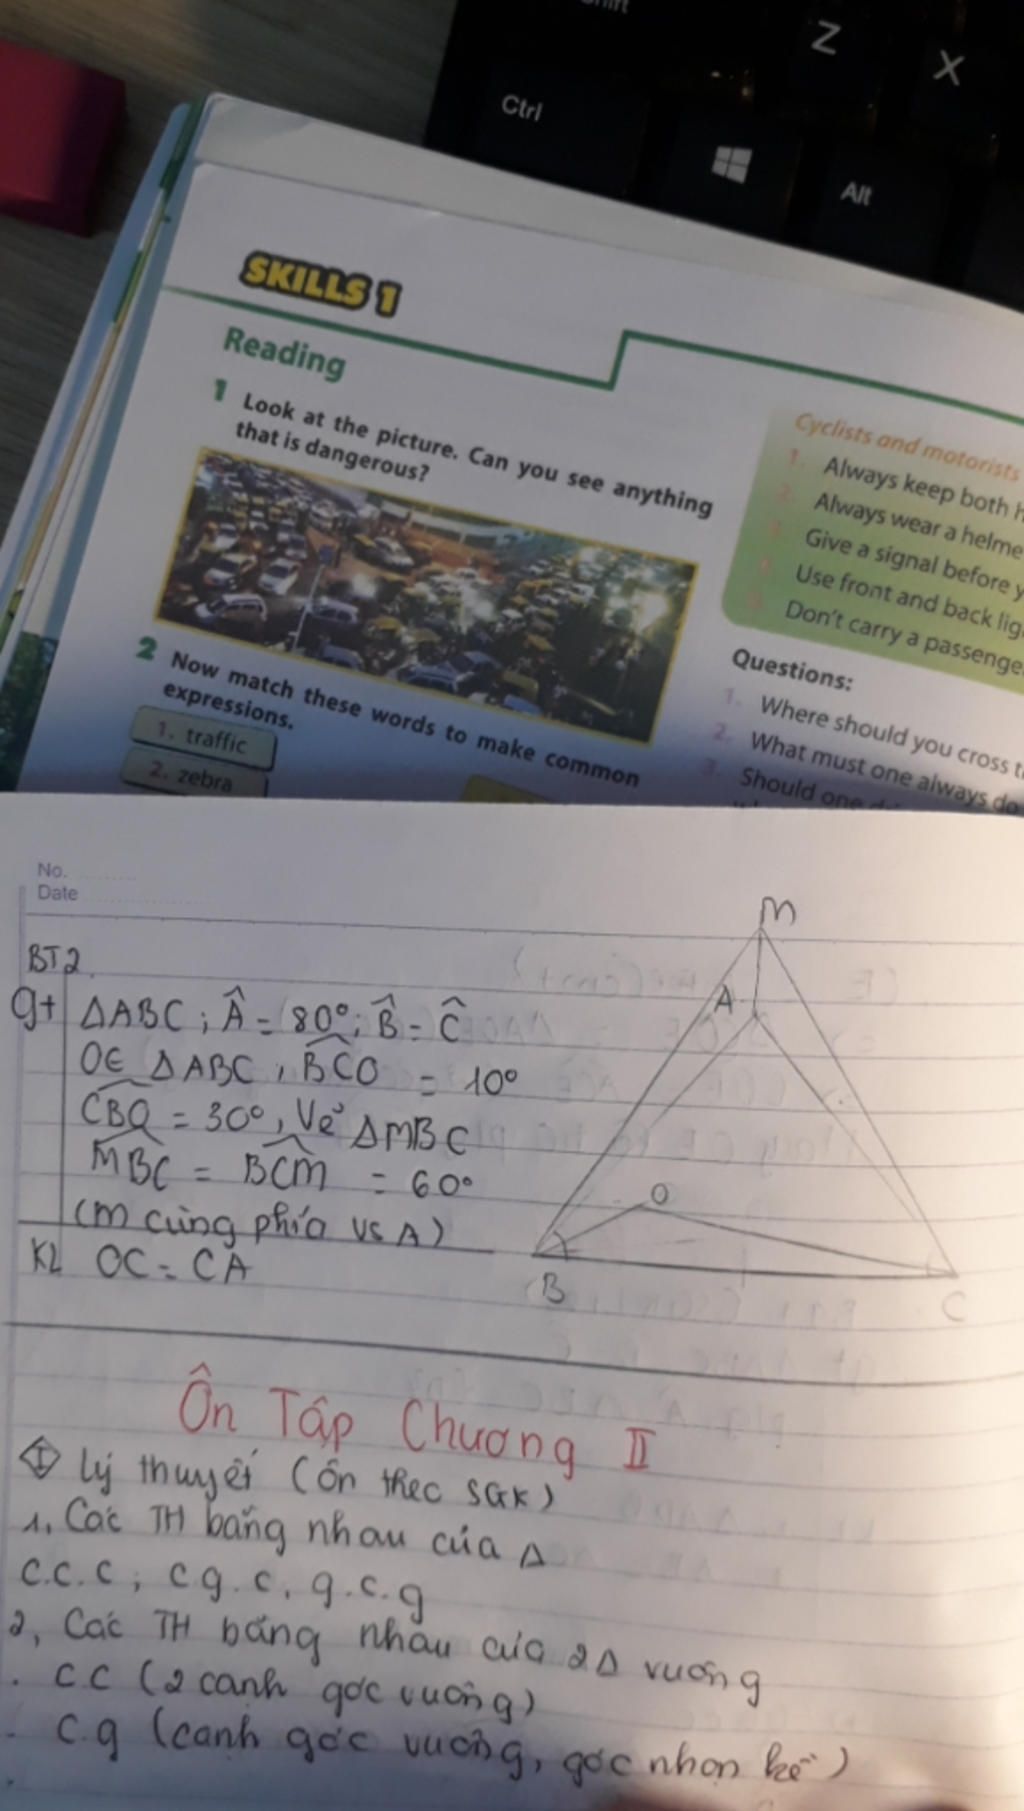 Shift
Z
X
Ctrl
Alt
SKILLS 1
Reading
1 Look at the picture. Can you see anything
that is dangerous?
2 Now match these words to make common
expressions.
1. traffic
2. zebra
Cyclists and motorists
1. Always keep both h
2. Always wear a helme
3. Give a signal before y
4. Use front and back lig
5. Don't carry a passenge
Questions:
1. Where should you cross t
2. What must one always do
3. Should one
No.
Date
BT2
gt ΔABC; Â = 80°; B̂ = Ĉ
O∈ ΔABC, BCO = 10°
CBO = 30°, Vẽ ΔMBC
MBC = BCM = 60°
(M cùng phía vs A)
KL OC = CA
M
A
O
B
C
Ôn Tập Chương II
I Lý thuyết (ôn theo SGK)
1, Các TH bằng nhau của Δ
c.c.c; c.g.c, g.c.g
2, Các TH bằng nhau của 2Δ vuông
. c.c (2 cạnh góc vuông)
. c.g (cạnh góc vuông, góc nhọn kề)